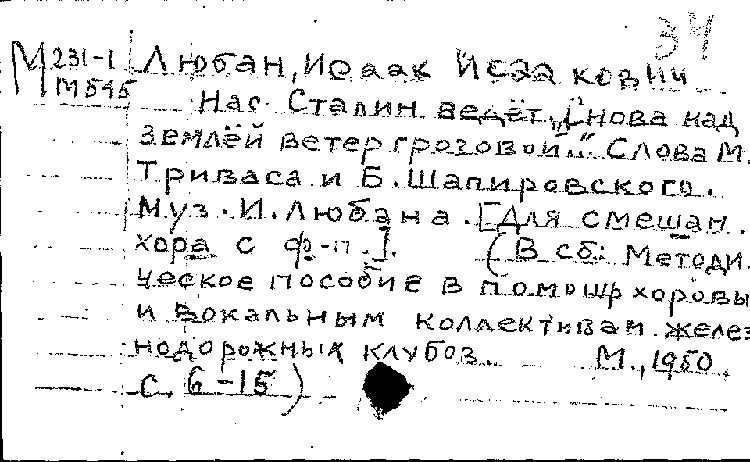 34
М 231-1 Любан, Исаак Исаакович
М545 Нас Сталин ведёт. „Снова над
землёй ветер грозовой..." Слова М.
Триваса и Б. Шапировского.
Муз. И. Любана. [Для смешан.
хора с ф-п.]. (В сб: Методи
ческое пособие в помощь хоровы
и вокальным коллективам желез
нодорожных клубов. М., 1950.
с. 6-15)